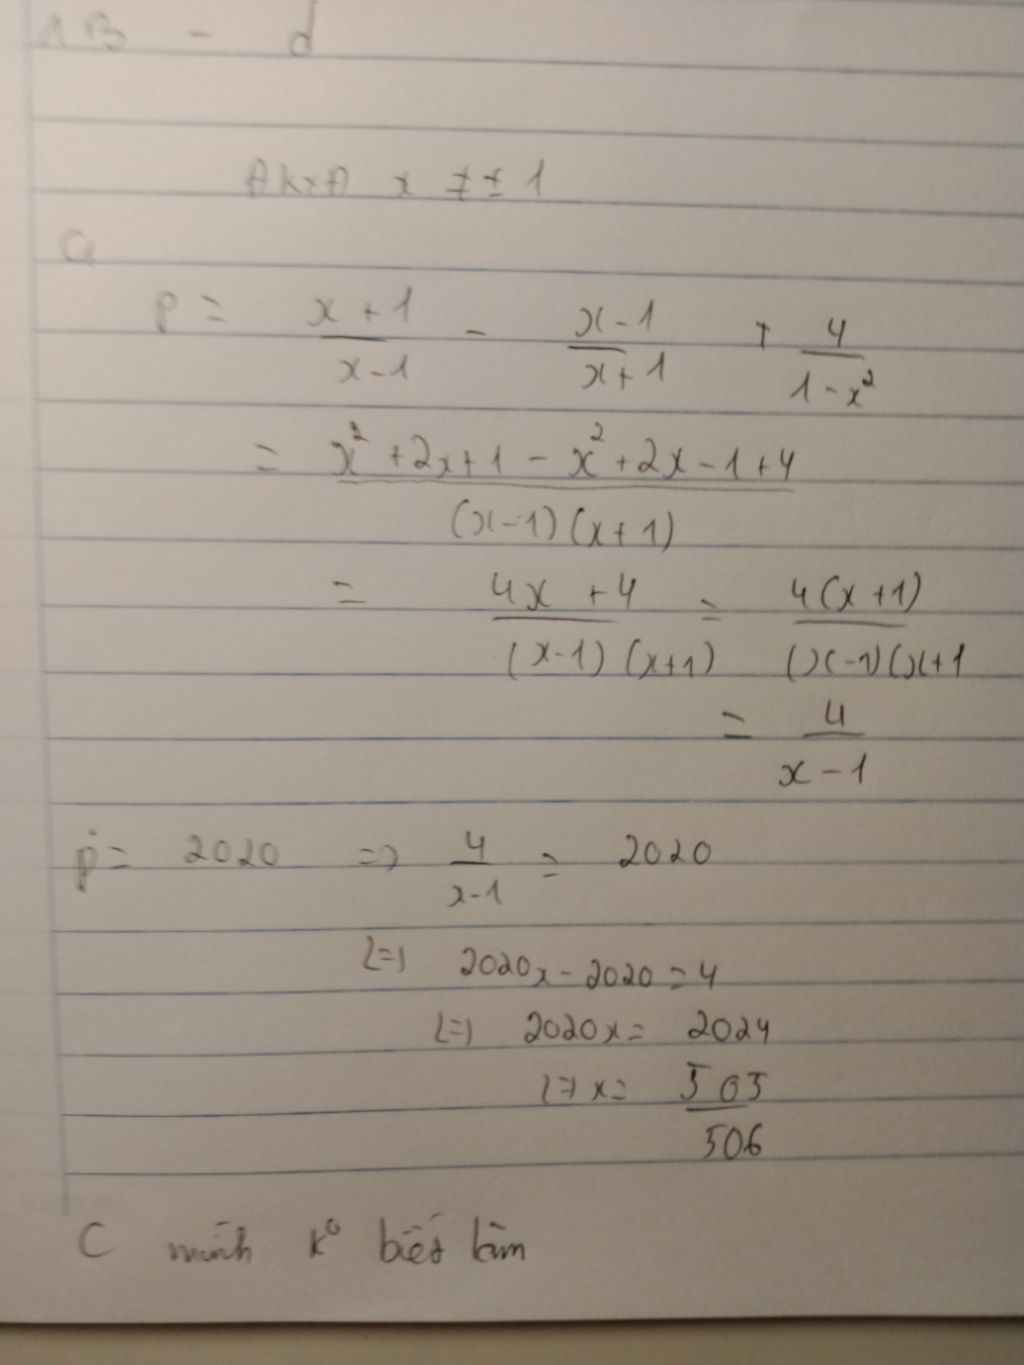 AB - d
ĐKXĐ x ≠ ± 1
a
P = \frac{x+1}{x-1} - \frac{x-1}{x+1} + \frac{4}{1-x^2}
= \frac{x^2+2x+1-x^2+2x-1+4}{(x-1)(x+1)}
= \frac{4x+4}{(x-1)(x+1)} = \frac{4(x+1)}{(x-1)(x+1}
= \frac{4}{x-1}
p = 2020 => \frac{4}{x-1} = 2020
<=> 2020x - 2020 = 4
<=> 2020x = 2024
<=> x = \frac{505}{506}
C mình k° biết làm